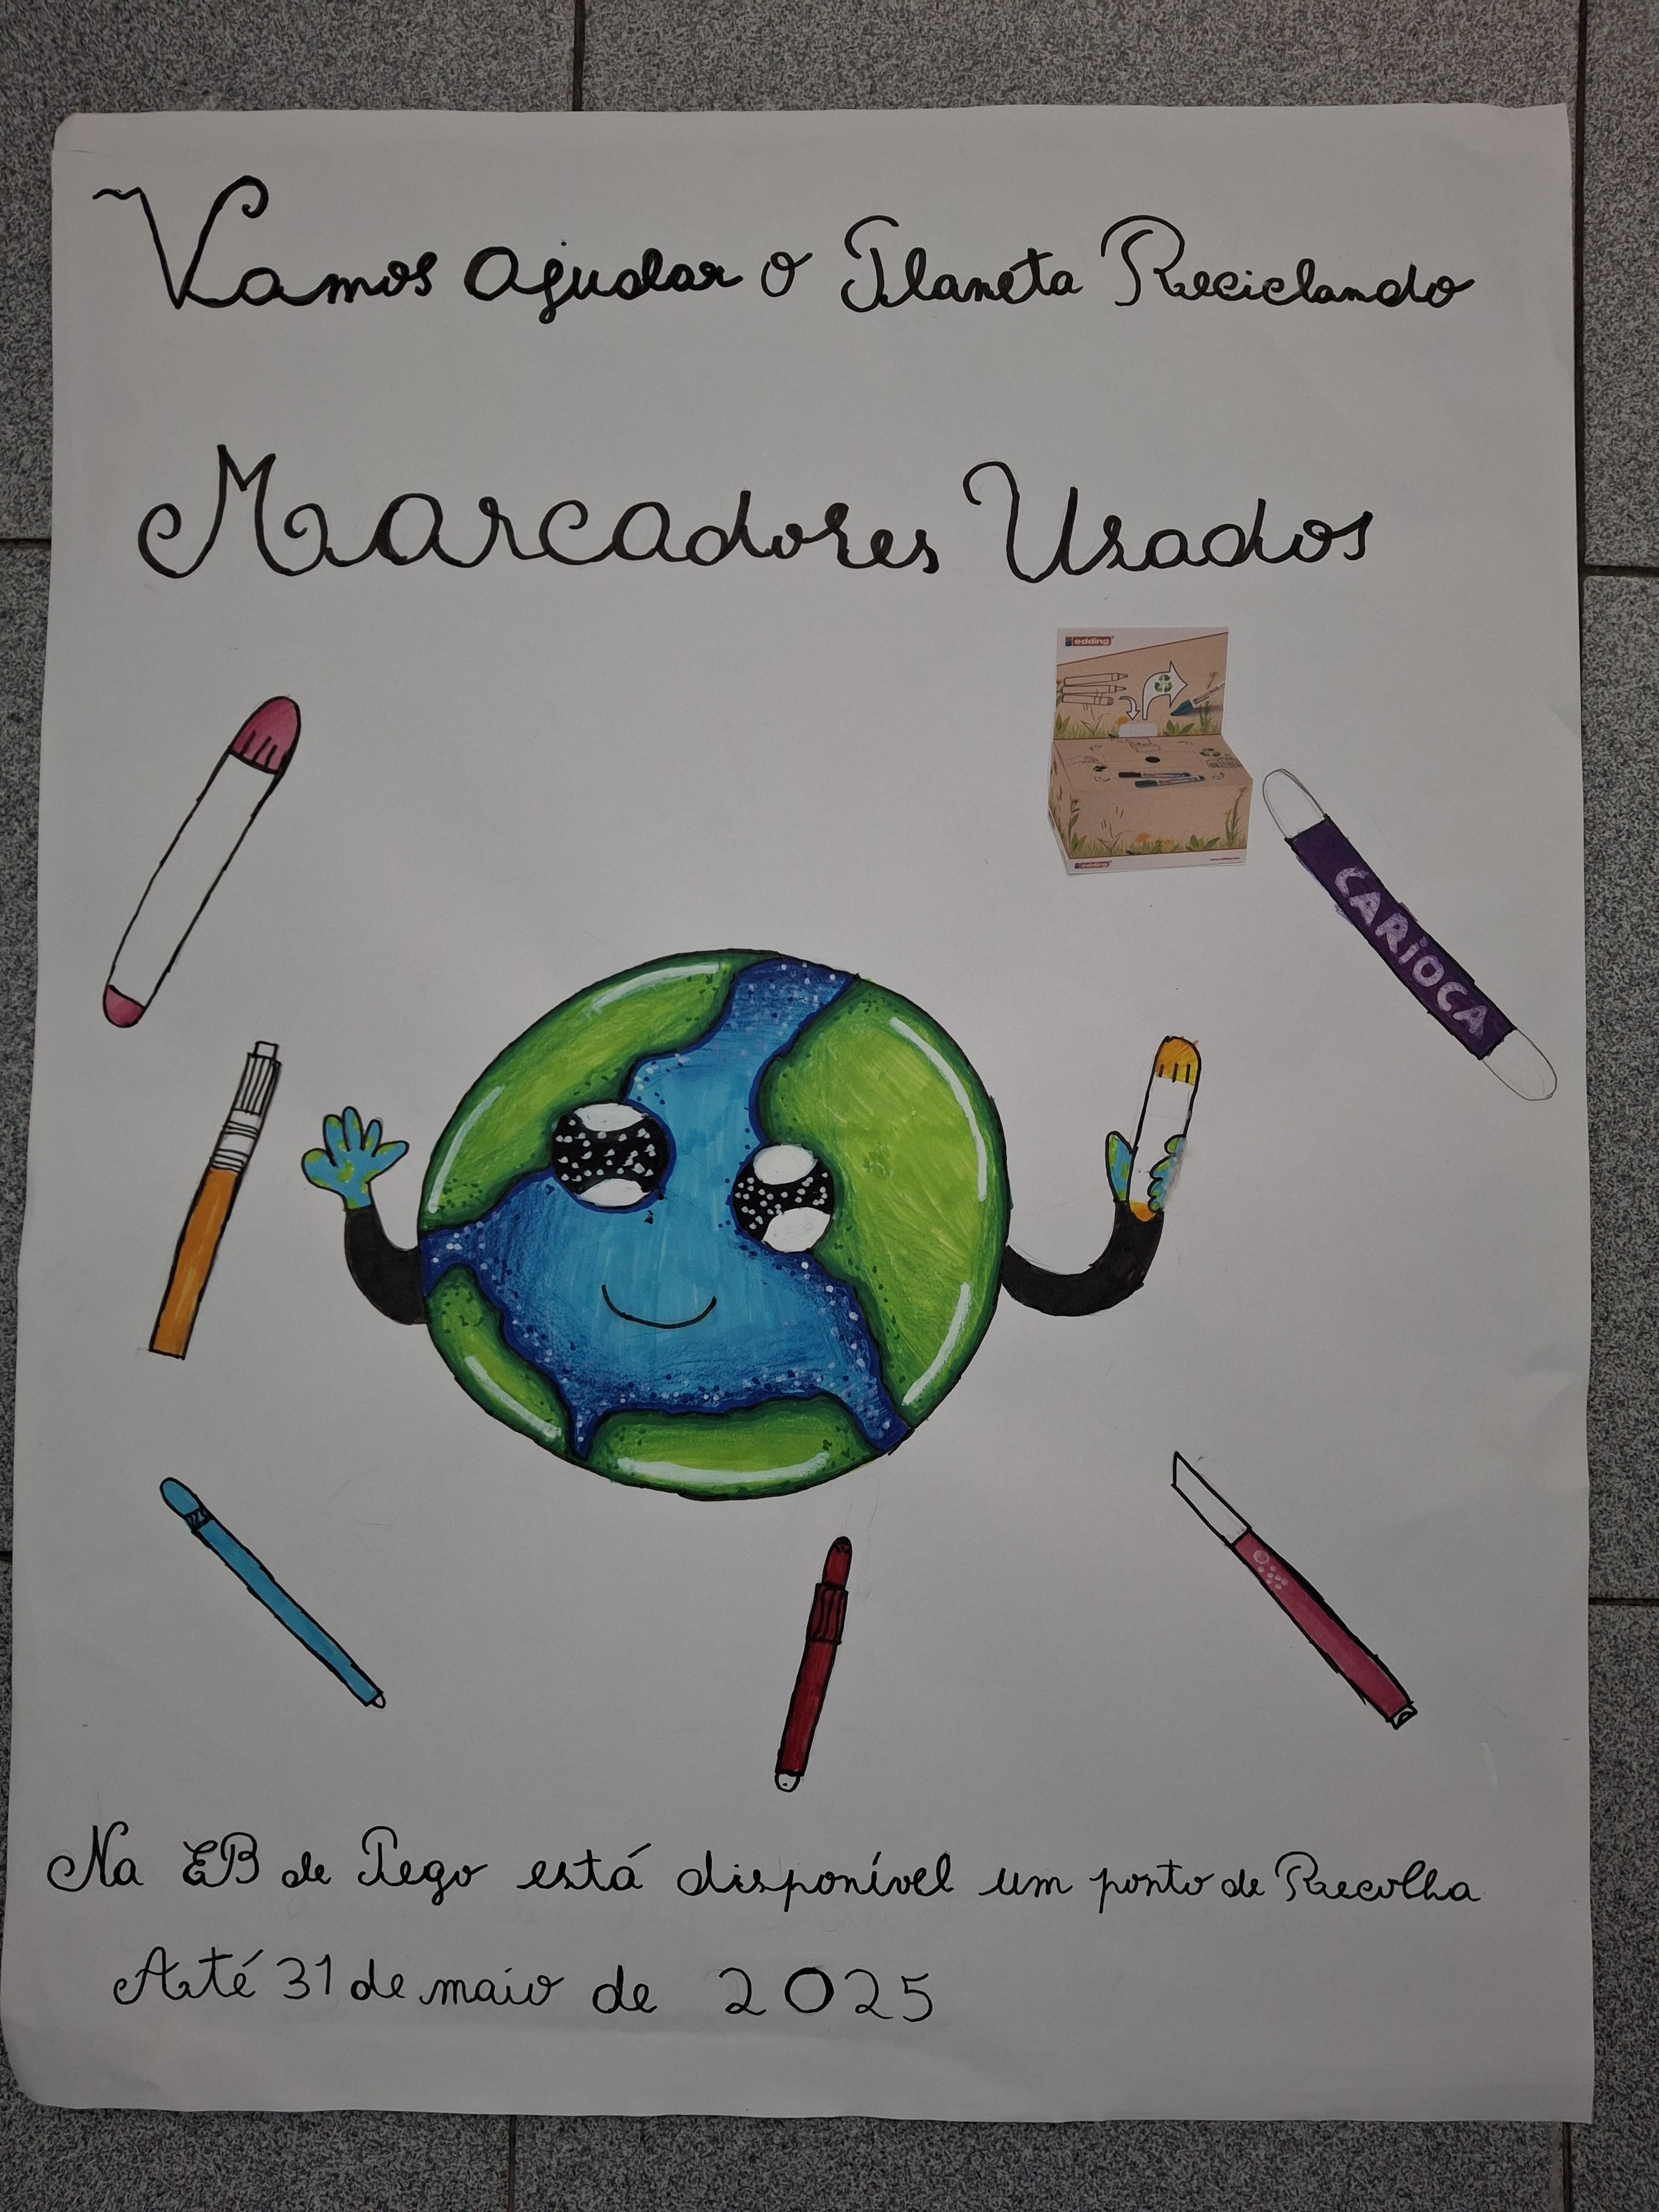 Vamos ajudar o Planeta Reciclando
Marcadores Usados
edding
edding
CARIOCA
Na EB de Pego está disponível um ponto de Recolha
Até 31 de maio de 2025